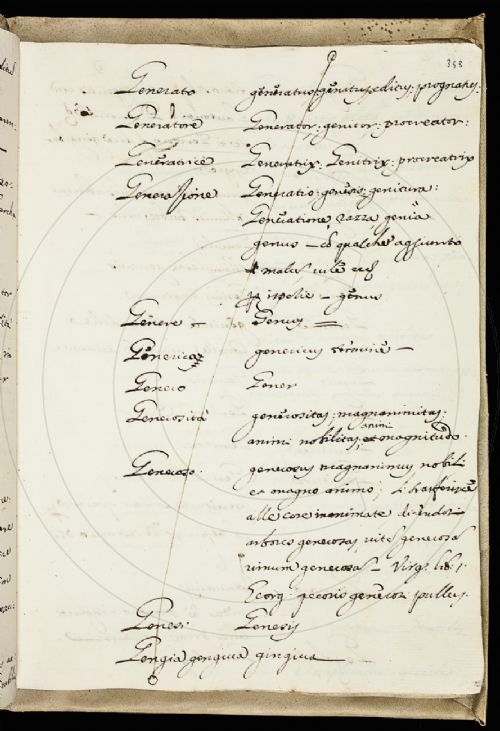 353
Generato generatus, genitus, editus, prognatus.
Generatore Generator: genitor: procreator:
Generatrice Generatrix: Genitrix: procreatrix
Generazione Generatio: genesis: genitura:
Generatione razza genia
genus — cõ qualche aggiunto
malus vile
specie — genus
Genere Genus
Generica genericus
Genero Gener
Generosità generositas: magnanimitas:
animi nobilitas, et animi magnitudo.
Generoso: generosus magnanimus nobili
et magno animo:
alle cose inanimate
arbores generosas, vites generosas
vinum generosas — Virg. lib.
Georg: pecoris generosi pullus.
Genesi: Genesis
Gengia gengiva gingiva